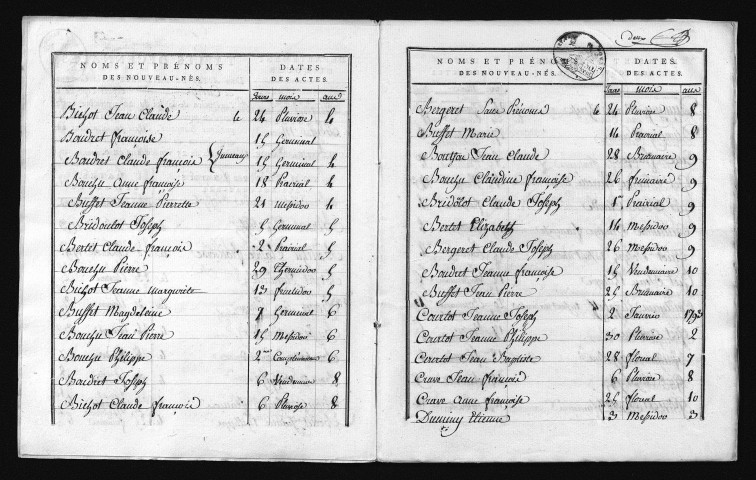 NOMS ET PRÉNOMS DES NOUVEAU-NÉS. DATES DES ACTES.
Jours mois ans
Bichot Jean Claude le 24 Pluviose 4
Boudret françoise 15 Germinal
Boudret Claude françois Jumeaux 15 Germinal 4
Bouchu Anne françoise 18 Prairial 4
Buffet Jeanne Pierrette 21 Messidor 4
Bridoulot Joseph 5 Germinal 5
Bertet Claude françois 2 Prairial 5
Bouchu Pierre 29 Thermidor 5
Bichot Jeanne Marguerite 13 fructidor 5
Buffet Magdeleine 7 Germinal 6
Bouchu Jean Pierre 15 Messidor 6
Bouchu Philippe 2 Complémentaire 6
Boudret Joseph 6 Vendemiaire 8
Bichot Claude françois 6 Pluviose 8
deux
NOMS ET PRÉNOMS DES NOUVEAU-NÉS. DATES DES ACTES.
Jours mois ans
Bergeret Sans Prénoms le 24 Pluviose 8
Buffet Marie 14 Prairial 8
Jean Claude 28 Brumaire 9
Bouchu Claudine françoise 26 frimaire 9
Bridôlot Claude Joseph 1er Prairial 9
Bertet Elizabeth 14 Messidor 9
Bergeret Claude Joseph 26 Messidor 9
Boudret Jeanne françoise 15 Vendemiaire 10
Buffet Jean Pierre 25 Brumaire 10
Courtot Jeanne Joseph 2 Janvier 1793
Courtot Jeanne Philippe 30 Pluviose 2
Courtot Jean Baptiste 28 floreal 7
Crave Jean françois 6 Pluviose 8
Crave Anne françoise 25 floreal 10
Dumény Etienne 3 Messidor 3